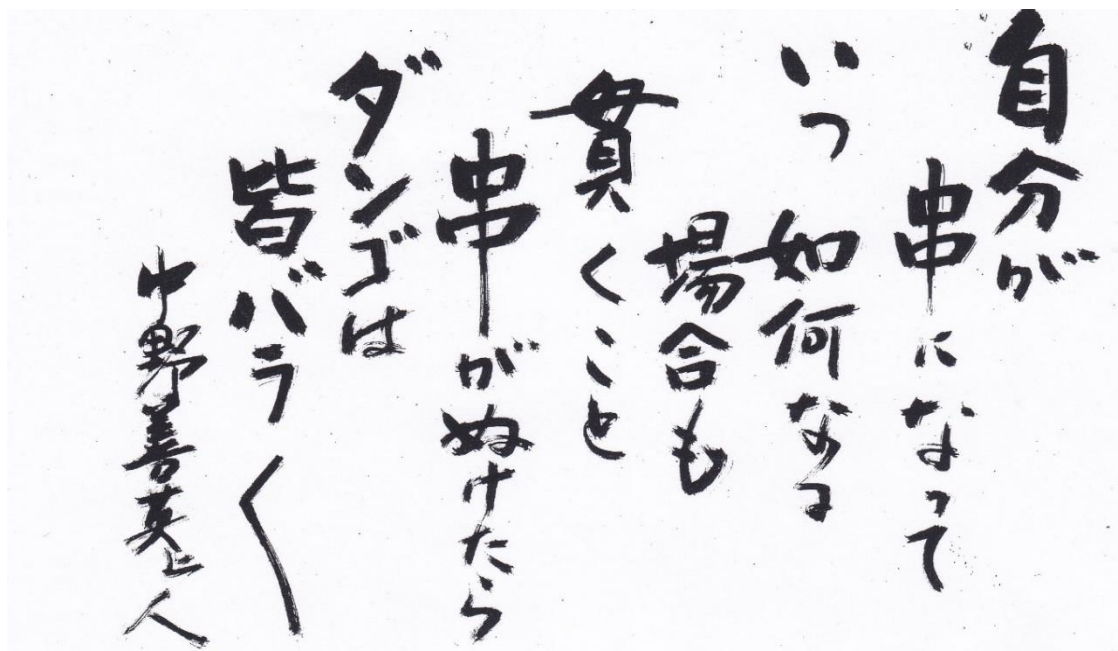 自分が
串になって
いつ 如何なる
場合も
貫くこと
串がぬけたら
ダンゴは
皆バラ〱
中野善英上人